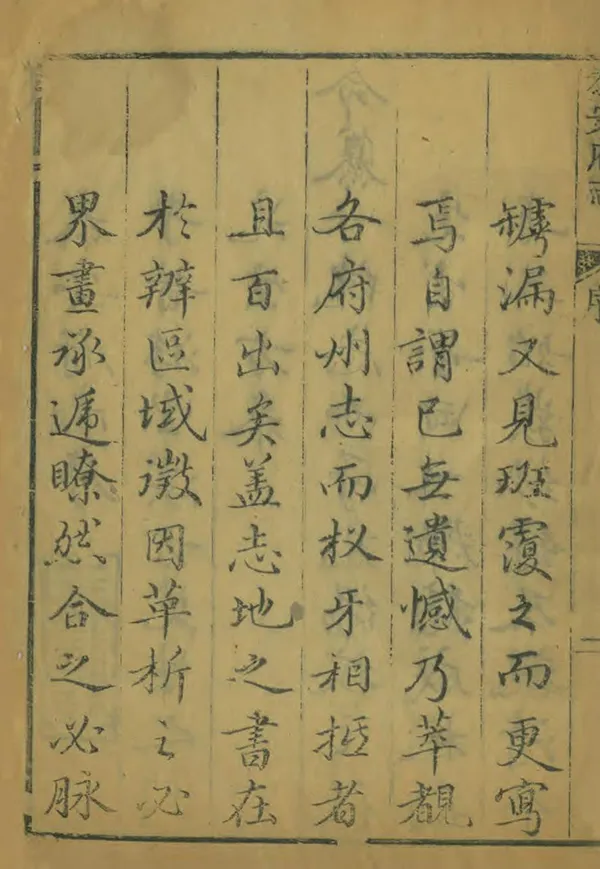 罅漏又見班覆之而更寫
焉自謂已無遺憾乃萃覩
各府州志而杈牙相抵者
且百出矣盖志地之書在
於辨區域徵因革析之必
界畫承遞瞭然合之必脉